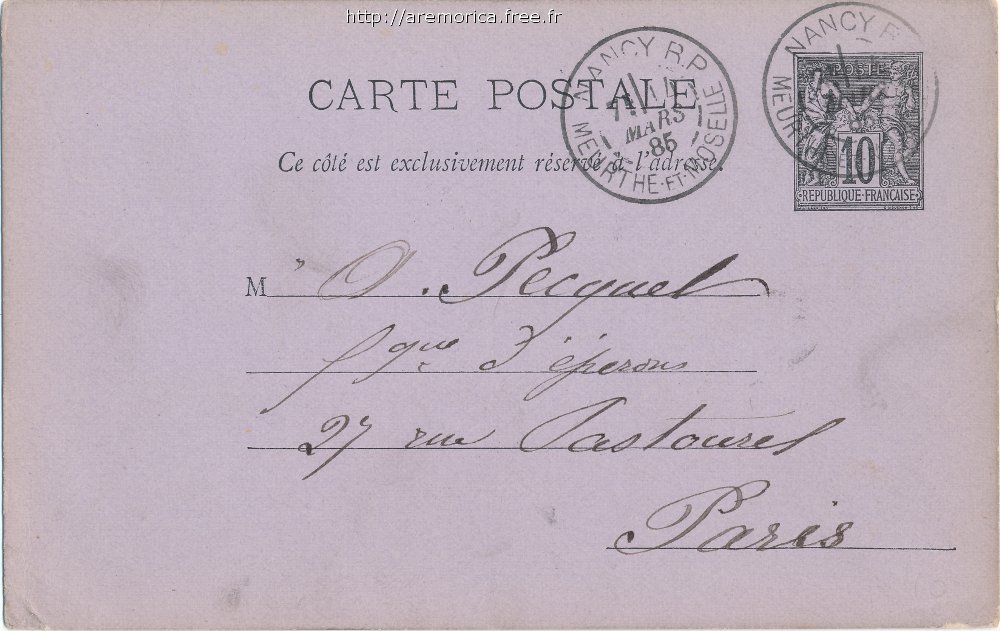 http://aremorica.free.fr
NANCY R.P.
MARS
85
MEURTHE-ET-MOSELLE
NANCY R
POSTE
10
REPUBLIQUE FRANÇAISE
CARTE POSTALE
Ce côté est exclusivement réservé à l'adresse.
M A. Pecquet
fque d'éperons
27 rue Pastourel
Paris